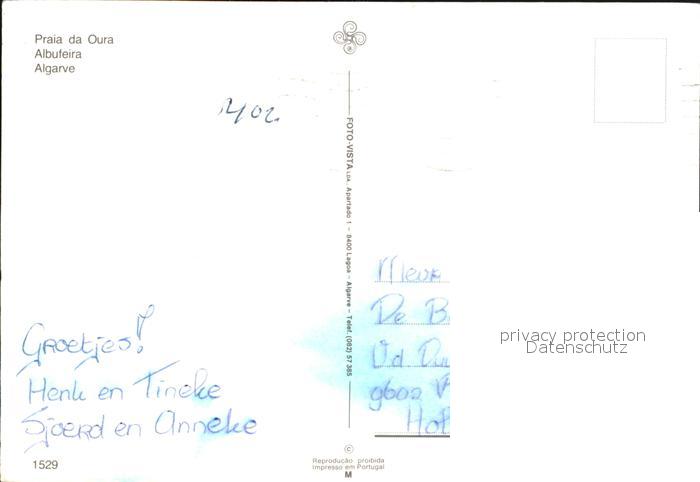 Praia da Oura
Albufeira
Algarve
1402
FOTO-VISTA LDA. Apartado 1 - 8400 Lagoa - Algarve - Telef. (082) 57 385
Groetjes!
Henk en Tineke
Sjoerd en Anneke
Mevr
De B
Vd
9602
Hol
privacy protection
Datenschutz
1529
©
Reprodução proibida
Impresso em Portugal
M